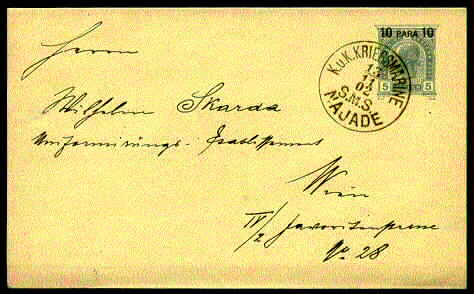 10 PARA 10
5 5
K.u.K. KRIEGSMARINE
13
11
02
S.M.S.
NAJADE
Herrn
Wilhelm Skarda
Uniformirungs-Etablissement
Wien
IV/2 Favoritenstrasse
No. 28